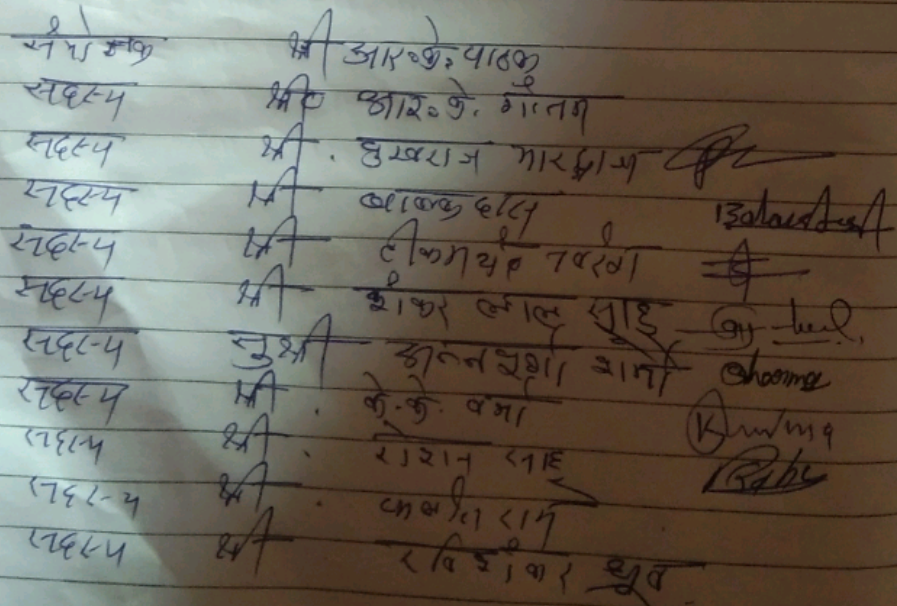 संयोजक श्री आर.के. पाठक
सदस्य श्री आर.के. गौतम
सदस्य श्री. पुखराज भारद्वाज
सदस्य श्री बालकदास
सदस्य श्री टीकमचंद
सदस्य श्री शंकर लाल साहू
सदस्य सुश्री अन्नपूर्णा शर्मा Sharma
सदस्य श्री. के.के. वर्मा
सदस्य श्री. रोशन साहू
सदस्य श्री. राम
सदस्य श्री रविशंकर ध्रुव